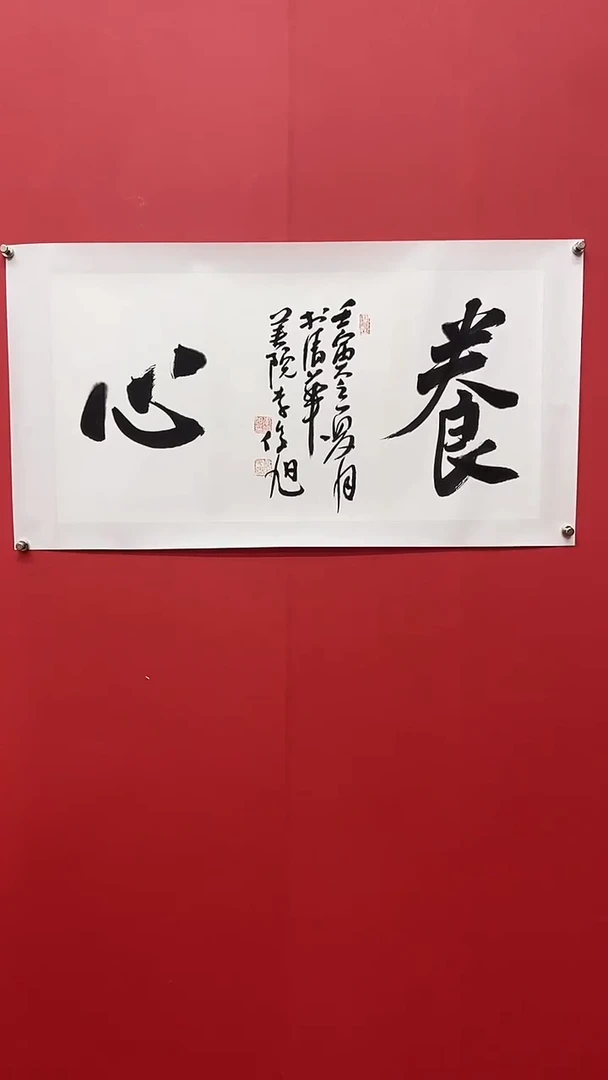 養
壬寅之夏月
於清華
美院李俊旭
心